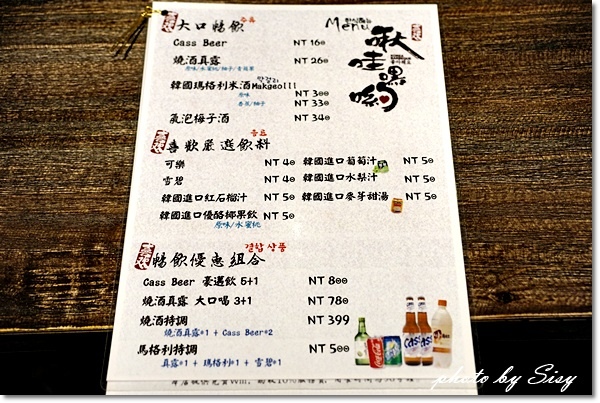 Menu
啾哇嘿喲
大口暢飲 음료
Cass Beer NT 160
燒酒真露 NT 260
原味/水蜜桃/柚子/青蘋果
韓國瑪格利米酒Makgeolli 막걸리
原味 NT 300
香蕉/柚子 NT 330
氣泡梅子酒 NT 340
喜歡嚴選飲料 음료
可樂 NT 40 韓國進口葡萄汁 NT 50
雪碧 NT 40 韓國進口水梨汁 NT 50
韓國進口紅石榴汁 NT 50 韓國進口麥芽甜湯 NT 50
韓國進口優酪椰果飲 NT 50
原味/水蜜桃
暢飲優惠組合 결합 상품
Cass Beer 豪邁飲 5+1 NT 800
燒酒真露 大口喝 3+1 NT 780
燒酒特調 NT 399
燒酒真露*1 + Cass Beer*2
馬格利特調 NT 500
真露*1 + 瑪格利*1 + 雪碧*1
photo by Sisy